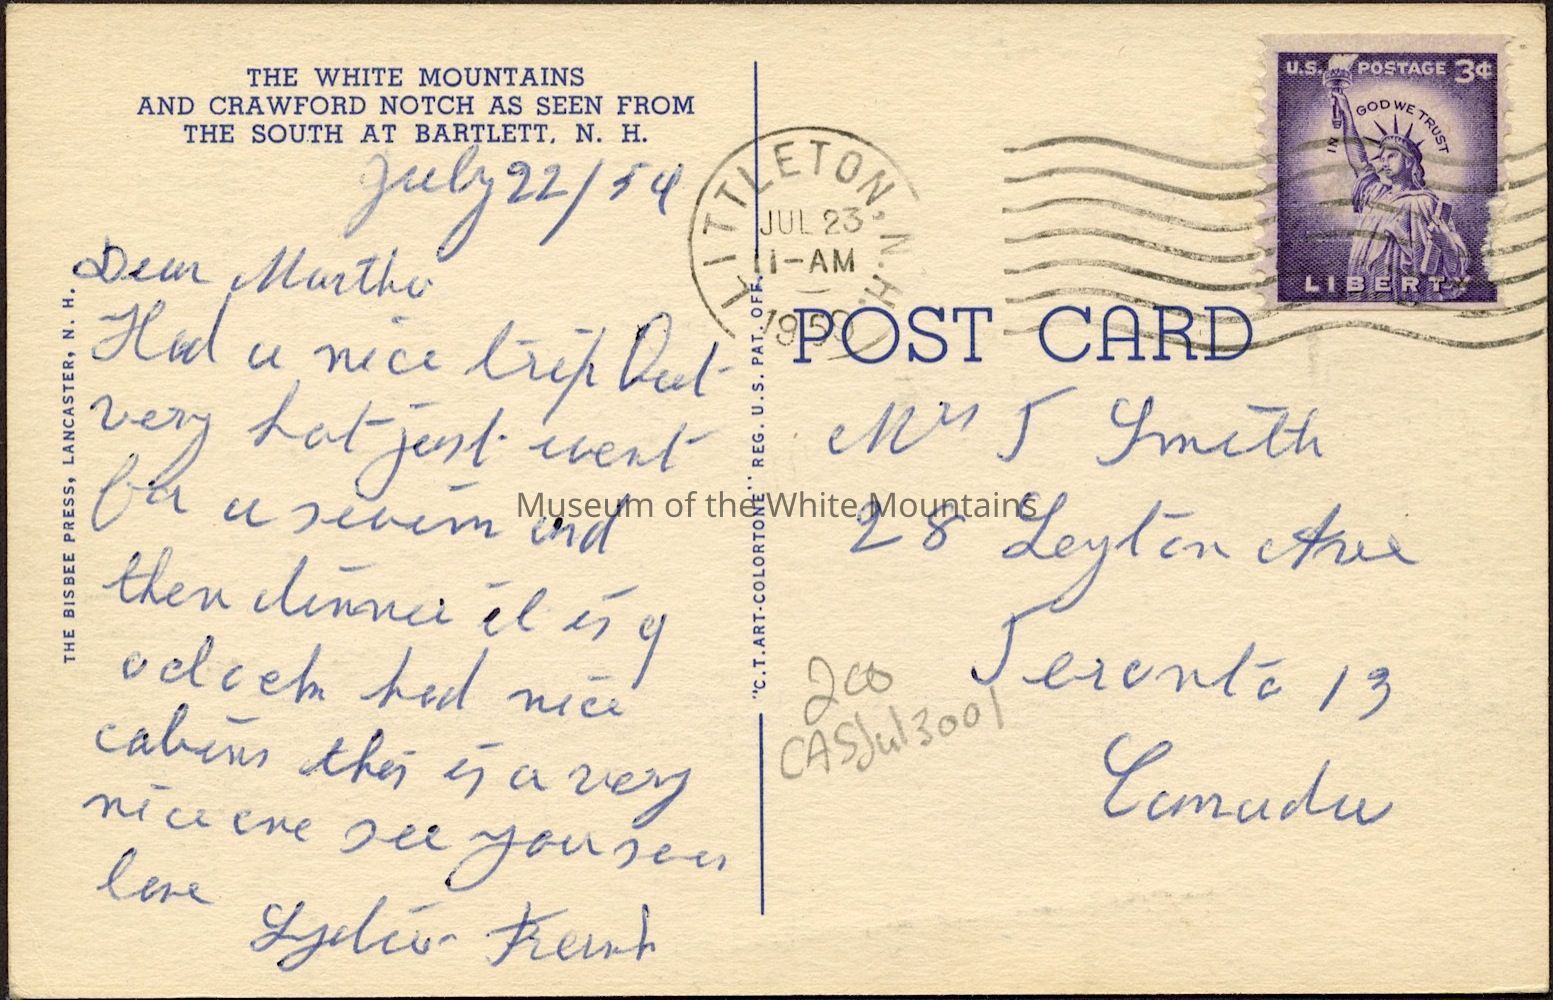 THE WHITE MOUNTAINS
AND CRAWFORD NOTCH AS SEEN FROM
THE SOUTH AT BARTLETT, N. H.
July 22/54
Dear Martha
Had a nice trip But
very hot just went
for a swim and
then dinner it is 9
oclock had nice
cabins this is a very
nice one see you soon
love
Lydia
THE BISBEE PRESS, LANCASTER, N. H.
"C.T. ART-COLORTONE" REG. U.S. PAT. OFF.
LITTLETON, N.H.
JUL 23
1-AM
U.S. POSTAGE 3¢
IN GOD WE TRUST
LIBERTY
POST CARD
Mrs J Smith
28 Leyton Ave
Toronto 13
Canada
200
CASJul3001
Museum of the White Mountains